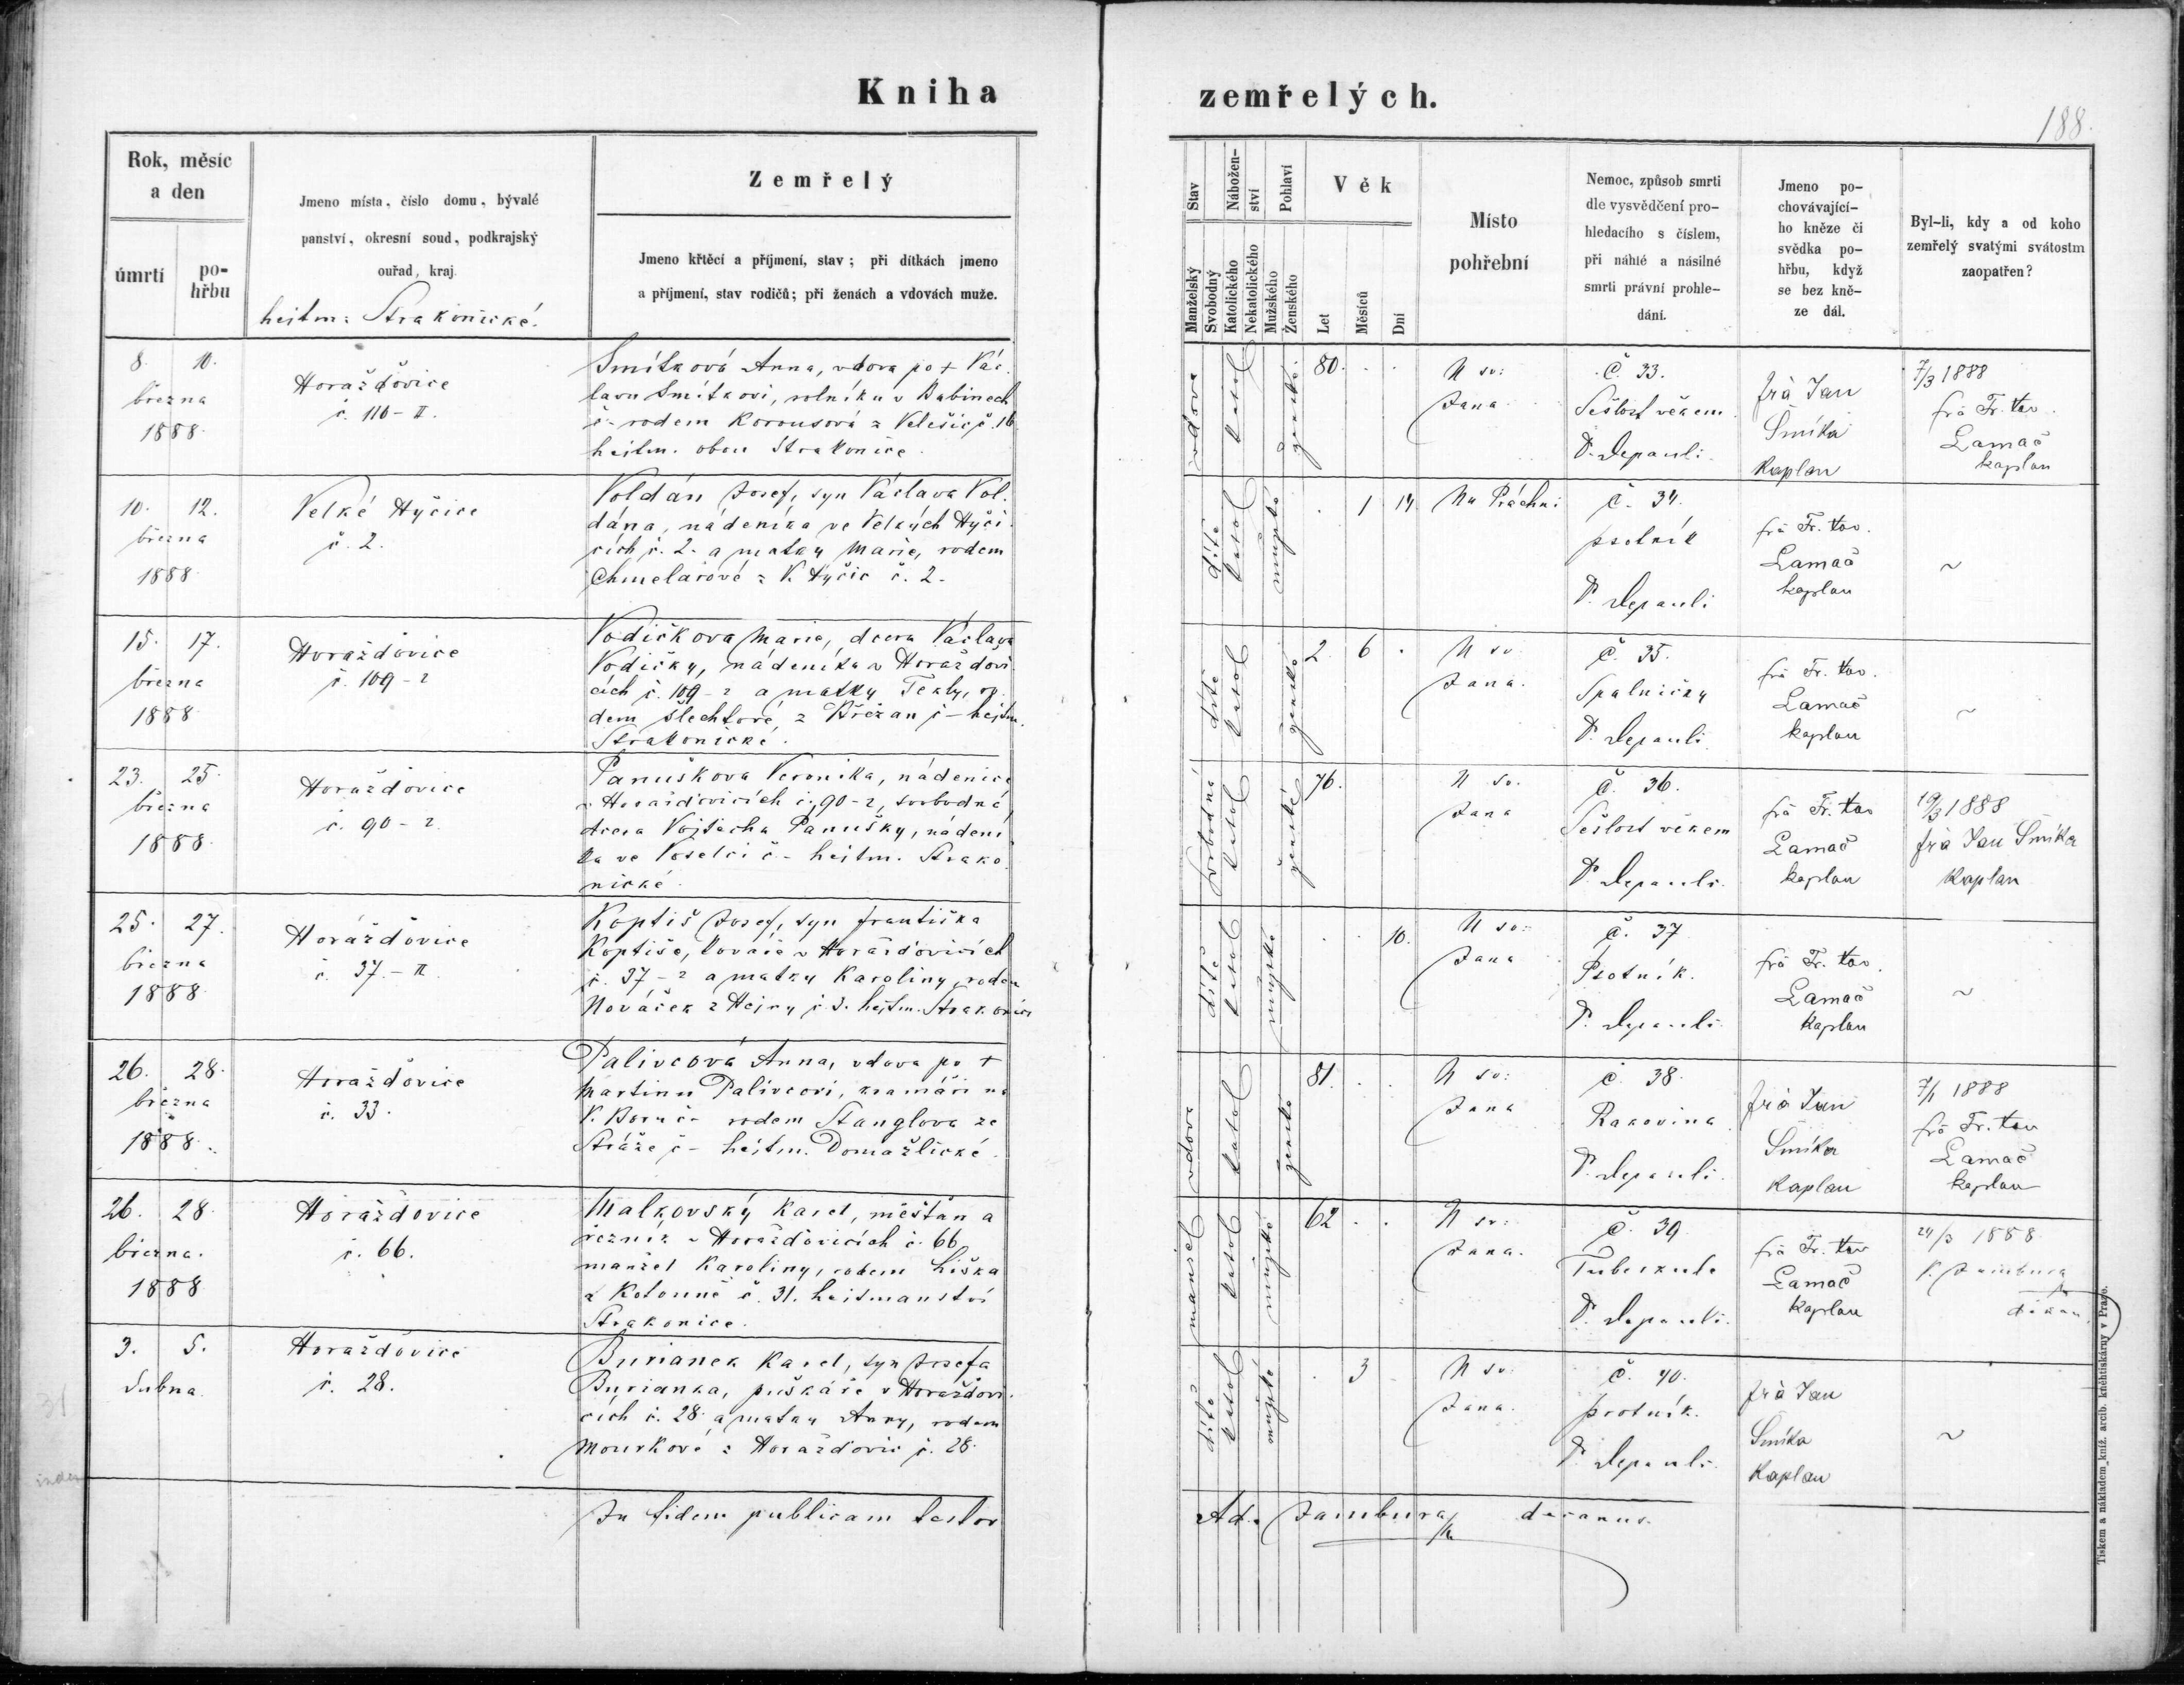 Kniha
zemřelých.
188.
Rok, měsíc
a den
úmrtí
po-
hřbu
Jmeno místa, číslo domu, bývalé
panství, okresní soud, podkrajský
ouřad, kraj.
hejtm: Strakonické.
Zemřelý
Jmeno křtěcí a příjmení, stav; při dítkách jmeno
a příjmení, stav rodičů; při ženách a vdovách muže.
Stav
Manželský
Svobodný
Nábožen-
ství
Katolického
Nekatolického
Pohlaví
Mužského
Ženského
Věk
Let
Měsíců
Dní
Místo
pohřební
Nemoc, způsob smrti
dle vysvědčení pro-
hledacího s číslem,
při náhlé a násilné
smrti právní prohle-
dání.
Jmeno po-
chovávající-
ho kněze či
svědka po-
hřbu, když
se bez kně-
ze dál.
Byl-li, kdy a od koho
zemřelý svatými svátostm
zaopatřen?
8. 10.
března
1888
Horažďovice
č. 110-II.
Smítková Anna, vdova po + Vác-
lavu Smítkovi, rolníku v Babinech
č- rodem Korousová z Velešic č. 16
hejtm. obou Strakonice.
vdova
katol
ženské
80. . .
U sv:
Jana
Č. 33.
Sešlost věkem
P. Depauli.
frà Jan
Šmíka
Kaplan
7/3 1888
frà Fr. Xav.
Lamač
kaplan
10. 12.
března
1888
Velké Hyčice
č. 2.
Voldán Josef, syn Václava Vol-
dána, nádeníka ve Velkých Hyči-
cích č. 2. a matky Marie, rodem
Chmelařové z V. Hyčic č. 2.
dítě
katol
mužské
. 1 14
Na Práchni
č. 34.
psotník
P. Depauli
frà Fr. Xav.
Lamač
kaplan
~
15. 17.
března
1888
Horažďovice
č. 109-2
Vodičkova Marie, dcera Václava
Vodičky, nádeníka v Horažďovi-
cích č. 109-2 a matky Tekly, ro-
dem Šlechtové, z Břežan č- hejtm.
Strakonické.
dítě
katol
ženské
2 6 .
U sv
Jana.
Č. 35.
Spalničky
P. Depauli.
frà Fr. Xav.
Lamač
kaplan
~
23. 25.
března
1888.
Horažďovice
č. 90-2.
Panuškova Veronika, nádenice
v Horažďovicích č. 90-2, svobodná,
dcera Vojtěcha Panušky, nádení-
ka ve Voselci č- hejtm. Strako-
nické.
svobodná
katol
ženské
76.
U sv.
Jana
Č. 36.
Sešlost věkem
P. Depauli.
frà Fr. Xav
Lamač
kaplan
19/3 1888
frà Jan Šmíka
Kaplan
25. 27.
března
1888
Horažďovice
č. 37.-II
Koptiš Josef, syn Františka
Koptiše, kováře v Horažďovicích
č. 37-2 a matky Karoliny, rodem
Nováček z Hejny č 3. hejtm. Strakonice
dítě
katol
mužské
. . 10.
U sv:
Jana
č. 37
Psotník.
P. Depauli
frà Fr. Xav.
Lamač
Kaplan
~
26. 28.
března
1888.
Horažďovice
č. 33.
Palivcová Anna, vdova po +
Martinu Palivcovi, kramáři na
V. Boru č- rodem Stanglova ze
Stráže č- hejtm. Domažlické.
vdova
katol
ženské
81. . .
U sv:
Jana
č. 38.
Rakovina
P. Depauli.
frà Jan
Šmíka
Kaplan
7/1 1888
frà Fr. Xav
Lamač
kaplan
26. 28.
března.
1888
Horažďovice
č. 66.
Malkovský Karel, měšťan a
řezník v Horažďovicích č. 66
manžel Karoliny, rodem Liška
z Kotouně č. 31. hejtmanství
Strakonice.
manžel
katol
mužské
62 . .
U sv:
Jana.
Č. 39.
Tuberkule
P. Depauli.
frà Fr. Xav
Lamač
kaplan
24/3 1888.
P. Jambura
děkan
3. 5.
dubna.
Horažďovice
č. 28.
Burianek Karel, syn Josefa
Burianka, puškaře v Horažďovi-
cích č. 28 a matky Anny, rodem
Mourkové z Horažďovic č. 28.
dítě
katol
mužské
. 3
U sv:
Jana.
Č. 40.
psotník.
P. Depauli.
frà Jan
Šmíka
Kaplan
~
31
index
In fidem publicam testor
Ad. Jambura decanus.
Tiskem a nákladem kníž. arcib. kněhtiskárny v Praze.